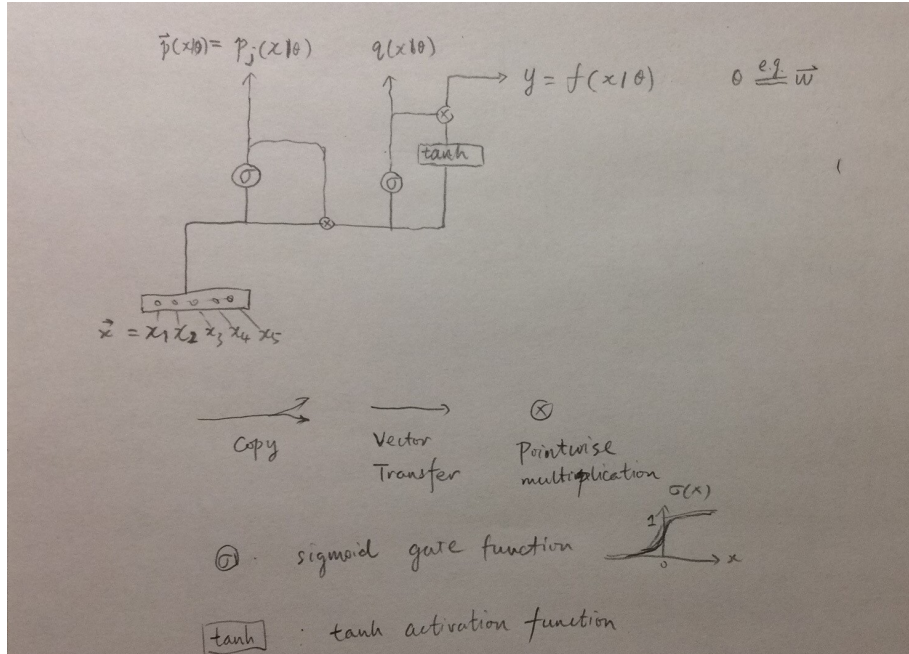 p⃗(x|θ) = pⱼ(x|θ) q(x|θ)
y = f(x|θ) θ e.g. w⃗
⊗
tanh
σ σ
⊗
x⃗ = x₁ x₂ x₃ x₄ x₅
⊗
Copy Vector Transfer Pointwise multiplication
σ(x)
1
σ · sigmoid gate function
0 x
tanh · tanh activation function